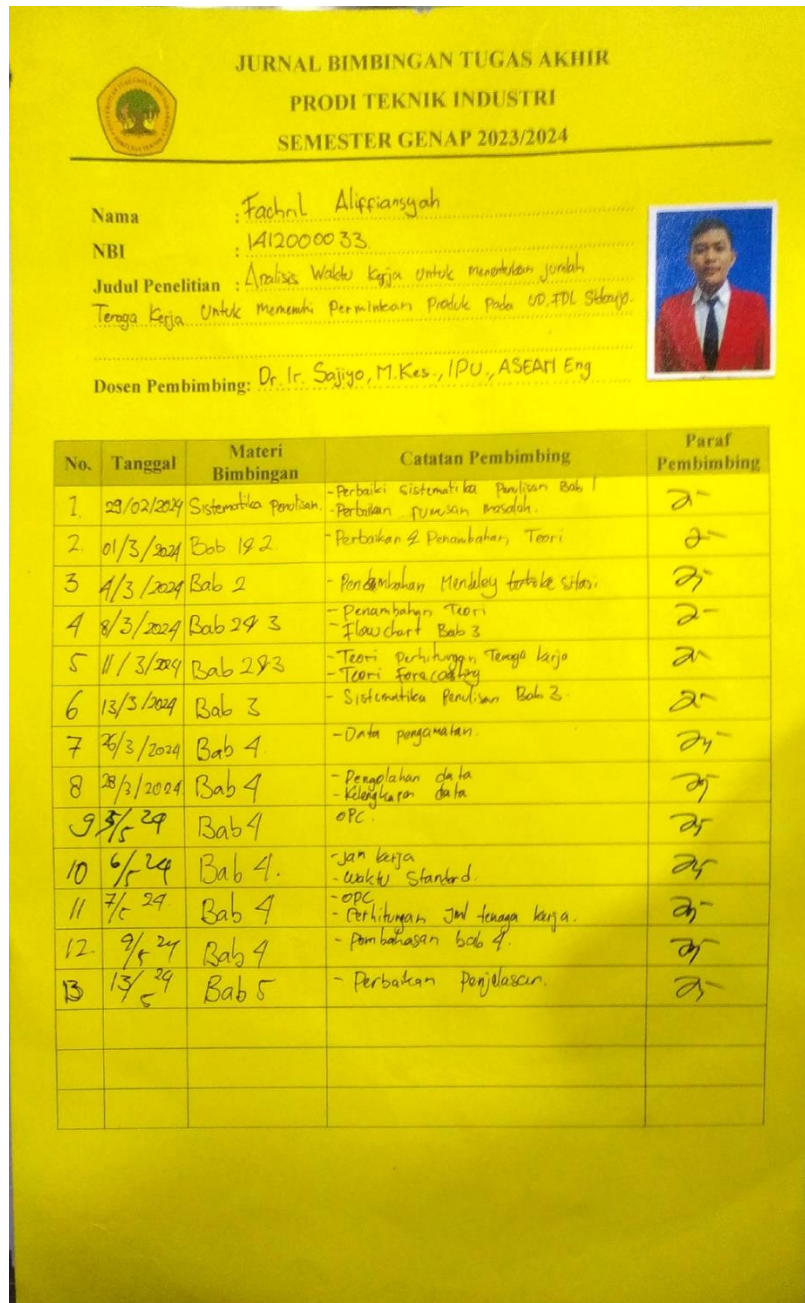 JURNAL BIMBINGAN TUGAS AKHIR
PRODI TEKNIK INDUSTRI
SEMESTER GENAP 2023/2024
Nama : Fachril Aliffiansyah
NBI : 1412000033
Judul Penelitian : Analisis Waktu Kerja Untuk menentukan jumlah
Tenaga Kerja Untuk Memenuhi Permintaan Produk Pada UD. FDL Sidoarjo.
Dosen Pembimbing: Dr. Ir. Sajiyo, M.Kes., IPU., ASEAN Eng
No. Tanggal Materi Bimbingan Catatan Pembimbing Paraf Pembimbing
1. 29/02/2024 Sistematika Penulisan. -Perbaiki Sistematika Penulisan Bab 1
-Perbaikan rumusan masalah.
2. 01/3/2024 Bab 1&2. -Perbaikan & Penambahan Teori
3 4/3/2024 Bab 2 - Penambahan Mendeley sitasi.
4 8/3/2024 Bab 2&3 - Penambahan Teori
- Flowchart Bab 3
5 11/3/2024 Bab 2&3 - Teori Perhitungan Tenaga kerja
- Teori Forecasting
6 13/3/2024 Bab 3 - Sistematika Penulisan Bab 3.
7 26/3/2024 Bab 4. - Data pengamatan.
8 28/3/2024 Bab 4 - Pengolahan data
- Kelengkapan data
9 3/5 24 Bab 4 OPC.
10 6/5 24 Bab 4. -Jam kerja
- Waktu Standard.
11 7/5 24. Bab 4 - OPC
- Perhitungan Jml tenaga kerja.
12. 9/5 24 Bab 4 - Pembahasan bab 4.
13 13/5 24 Bab 5 - Perbaikan Penjelasan.